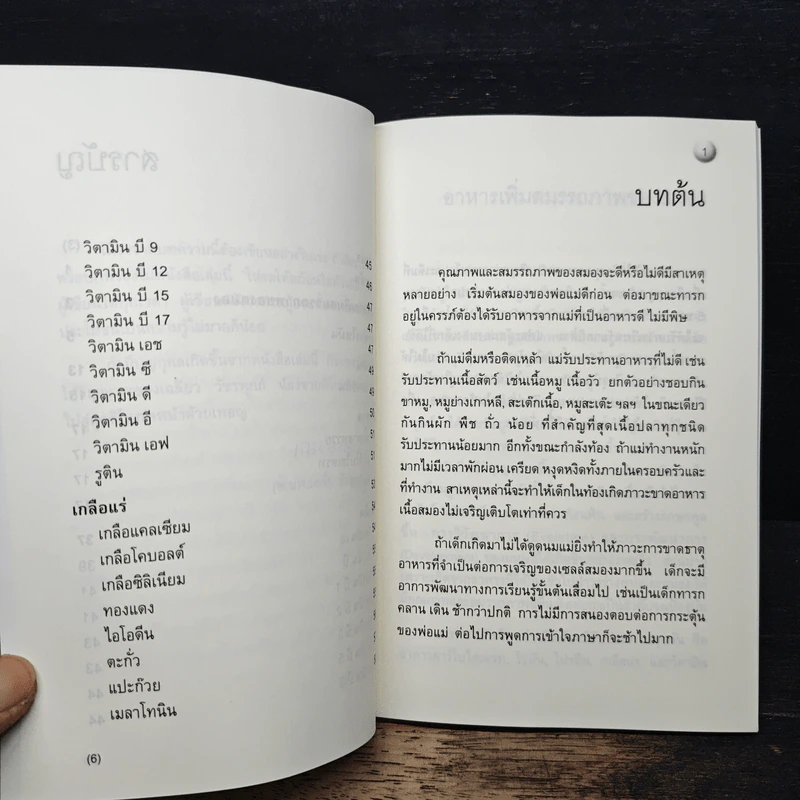 วิตามิน บี 9
วิตามิน บี 12
วิตามิน บี 15
วิตามิน บี 17
วิตามิน เอช
วิตามิน ซี
วิตามิน ดี
วิตามิน อี
วิตามิน เอฟ
รูติน
เกลือแร่
เกลือแคลเซียม
เกลือโคบอลต์
เกลือซิลิเนียม
ทองแดง
ไอโอดีน
ตะกั่ว
แปะก๊วย
เมลาโทนิน
45
46
47
47
47
(6)
1
บทต้น
คุณภาพและสมรรถภาพของสมองจะดีหรือไม่ดีมีสาเหตุ
หลายอย่าง เริ่มต้นสมองของพ่อแม่ดีก่อน ต่อมาขณะทารก
อยู่ในครรภ์ต้องได้รับอาหารจากแม่ที่เป็นอาหารดี ไม่มีพิษ
ถ้าแม่ดื่มหรือติดเหล้า แม่รับประทานอาหารที่ไม่ดี เช่น
รับประทานเนื้อสัตว์ เช่นเนื้อหมู เนื้อวัว ยกตัวอย่างชอบกิน
ขาหมู, หมูย่างเกาหลี, สะเต๊กเนื้อ, หมูสะเต๊ะ ฯลฯ ในขณะเดียว
กันกินผัก พืช ถั่ว น้อย ที่สำคัญที่สุดเนื้อปลาทุกชนิด
รับประทานน้อยมาก อีกทั้งขณะกำลังท้อง ถ้าแม่ทำงานหนัก
มากไม่มีเวลาพักผ่อน เครียด หงุดหงิดทั้งภายในครอบครัวและ
ที่ทำงาน สาเหตุเหล่านี้จะทำให้เด็กในท้องเกิดภาวะขาดอาหาร
เนื้อสมองไม่เจริญเติบโตเท่าที่ควร
ถ้าเด็กเกิดมาไม่ได้ดูดนมแม่ยิ่งทำให้ภาวะการขาดธาตุ
อาหารที่จำเป็นต่อการเจริญของเซลล์สมองมากขึ้น เด็กจะมี
อาการพัฒนาทางการเรียนรู้ขั้นต้นเสื่อมไป เช่นเป็นเด็กทารก
คลาน เดิน ช้ากว่าปกติ การไม่มีการสนองตอบต่อการกระตุ้น
ของพ่อแม่ ต่อไปการพูดการเข้าใจภาษาก็จะช้าไปมาก